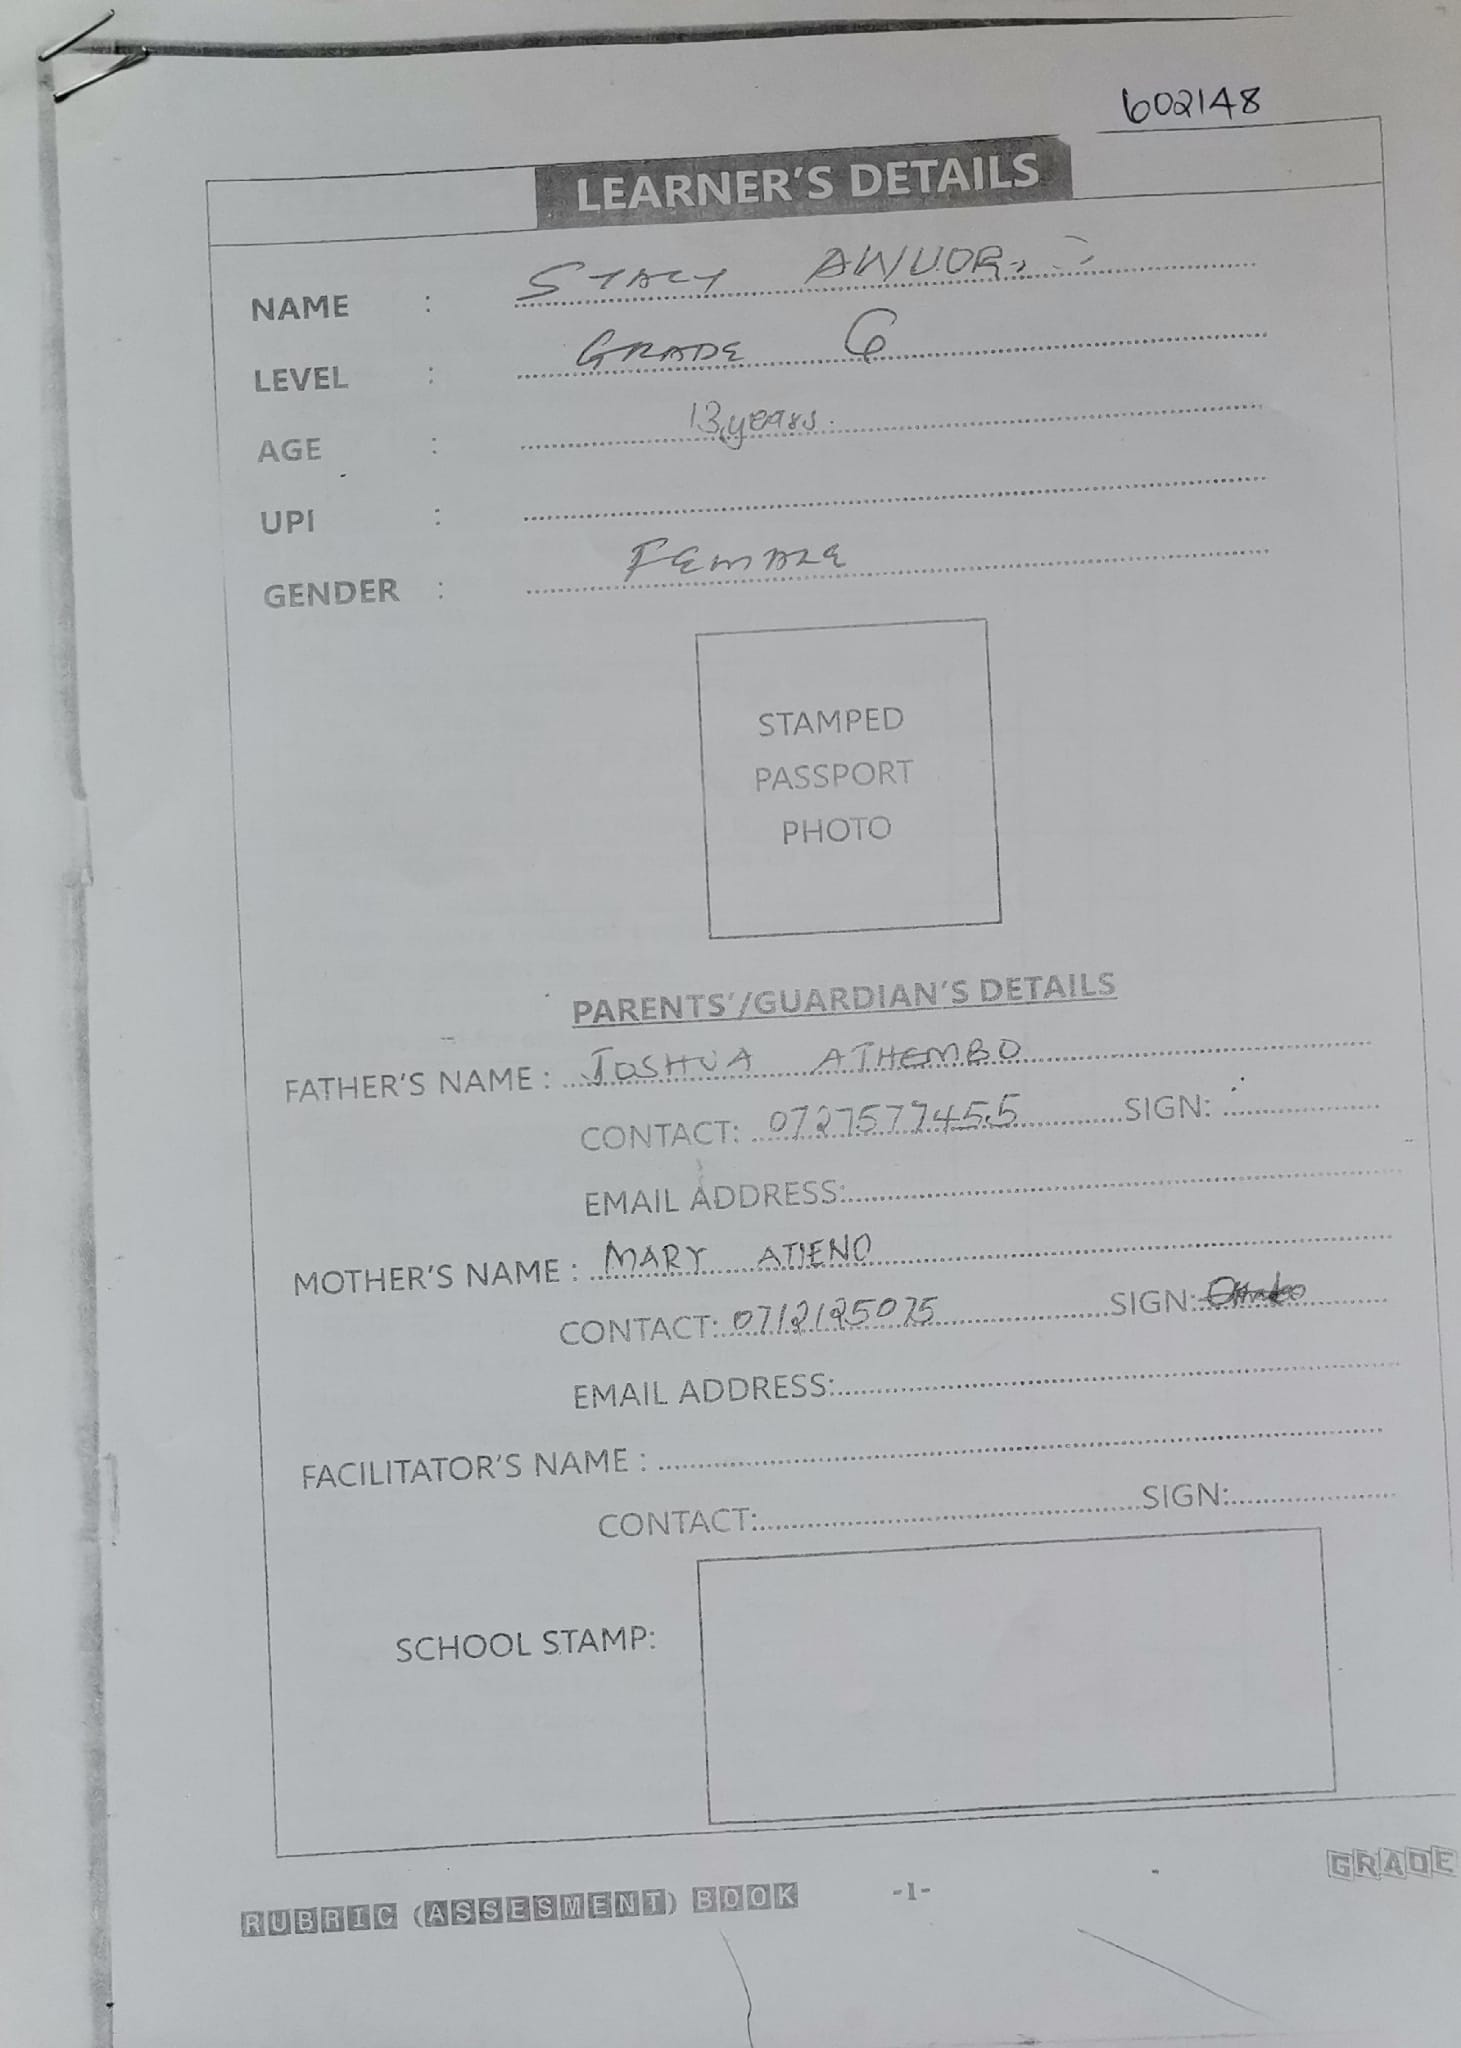 602148
LEARNER'S DETAILS
NAME : STACY AWUOR
LEVEL : GRADE 6
AGE : 13 years.
UPI :
GENDER : FEMALE
STAMPED
PASSPORT
PHOTO
PARENTS'/GUARDIAN'S DETAILS
FATHER'S NAME : JOSHUA ATHEMBO
CONTACT: 0727577455 SIGN:
EMAIL ADDRESS:
MOTHER'S NAME : MARY ATIENO
CONTACT: 0712125075 SIGN:
EMAIL ADDRESS:
FACILITATOR'S NAME :
CONTACT: SIGN:
SCHOOL STAMP:
RUBRIC (ASSESMENT) BOOK -1- GRADE